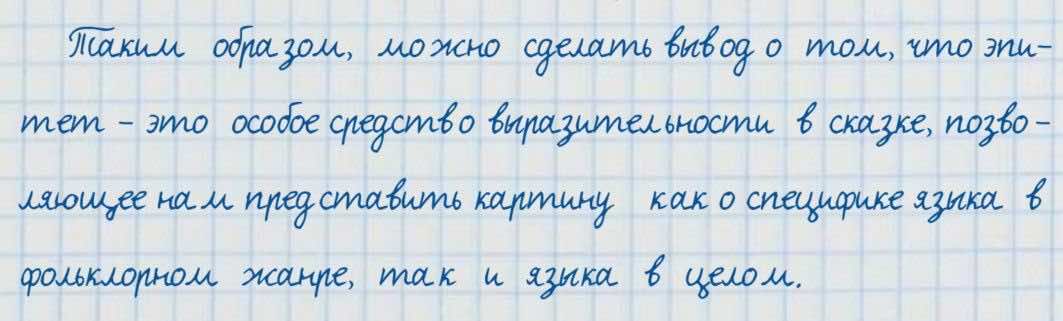 Таким образом, можно сделать вывод о том, что эпи-
тет - это особое средство выразительности в сказке, позво-
ляющее нам представить картину как о специфике языка в
фольклорном жанре, так и языка в целом.